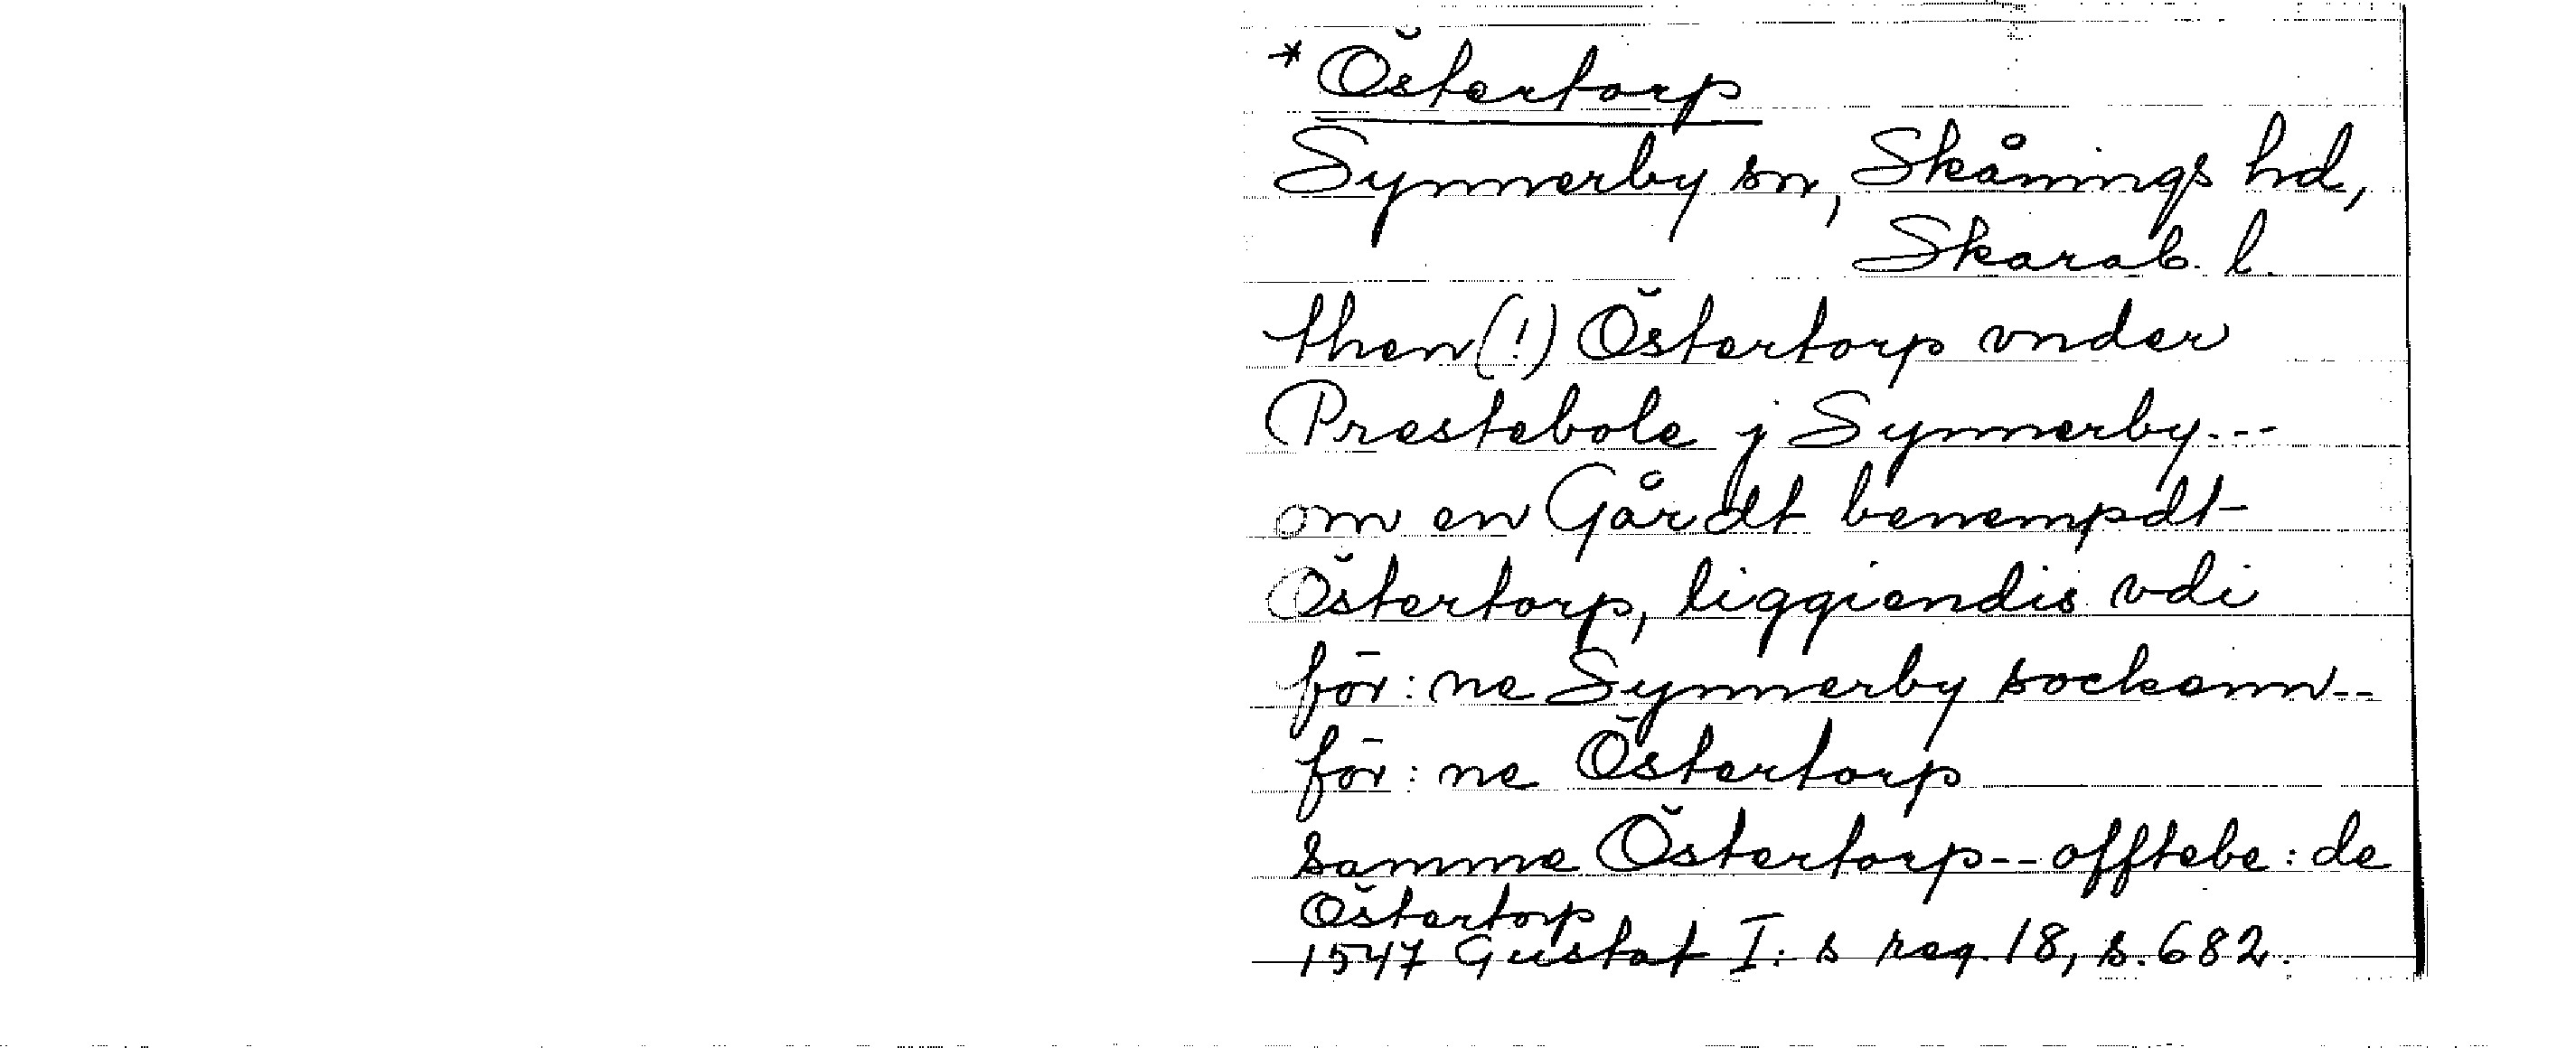 * Östertorp
Synnerby sn, Skånings hd,
Skarab. l.
then (!) Östertorp vnder
Prestebole j Synnerby ---
om en Gårdt benempdt
Östertorp, liggiendis vdi
för: ne Synnerby sockenn --
för: ne Östertorp
samme Östertorp -- offtebe: de
Östertorp
1547 Gustaf I: s reg. 18, s. 682.